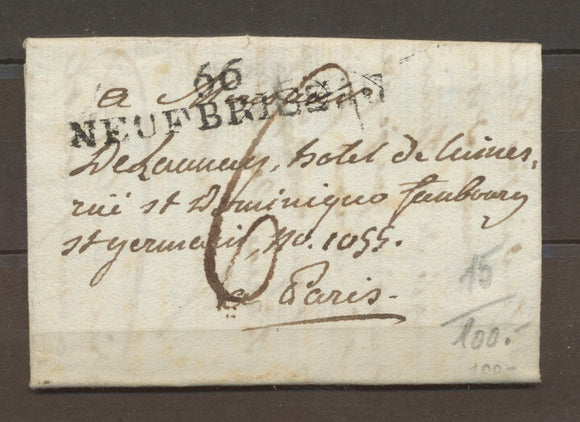 66
a Monsieur
NEUF BRISSAC
DeLaunay, hotel de luines,
rüe st Dominique faubourg
st germain, No. 1055.
6
a Paris.
15
100.-
100-